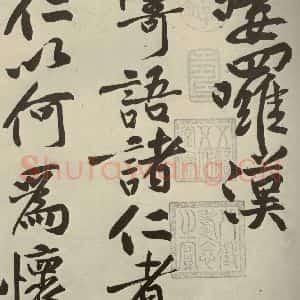 囉漢
寄語諸仁者
仁以何為懷
Shufawang.CN